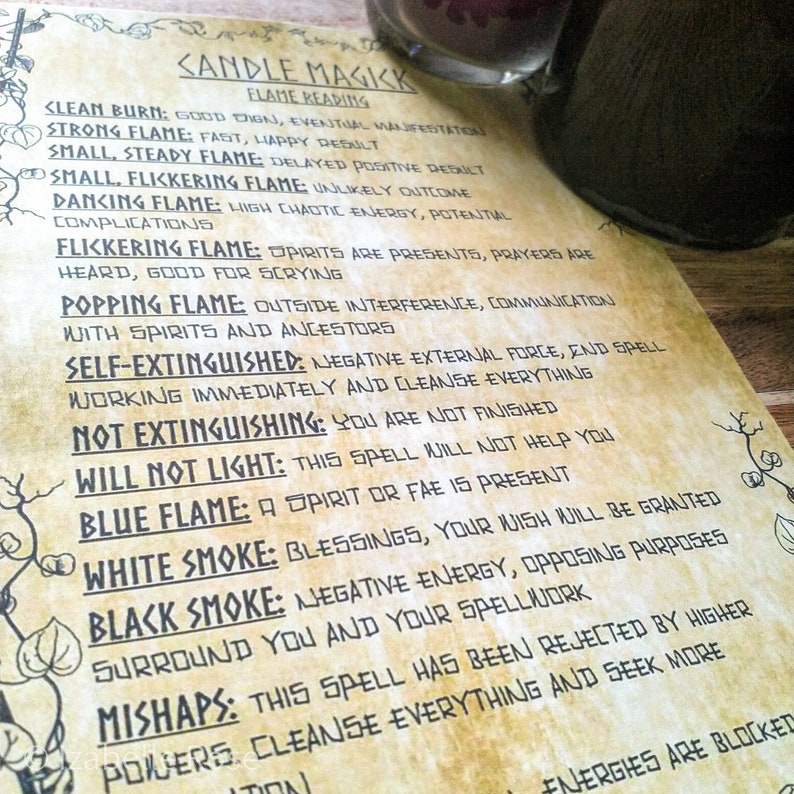 CANDLE MAGICK
FLAME READING
CLEAN BURN: GOOD SIGN, EVENTUAL MANIFESTATION
STRONG FLAME: FAST, HAPPY RESULT
SMALL, STEADY FLAME: DELAYED POSITIVE RESULT
SMALL, FLICKERING FLAME: UNLIKELY OUTCOME
DANCING FLAME: HIGH CHAOTIC ENERGY, POTENTIAL
COMPLICATIONS
FLICKERING FLAME: SPIRITS ARE PRESENTS, PRAYERS ARE
HEARD, GOOD FOR SCRYING
POPPING FLAME: OUTSIDE INTERFERENCE, COMMUNICATION
WITH SPIRITS AND ANCESTORS
SELF-EXTINGUISHED: NEGATIVE EXTERNAL FORCE, END SPELL
WORKING IMMEDIATELY AND CLEANSE EVERYTHING
NOT EXTINGUISHING: YOU ARE NOT FINISHED
WILL NOT LIGHT: THIS SPELL WILL NOT HELP YOU
BLUE FLAME: A SPIRIT OR FAE IS PRESENT
WHITE SMOKE: BLESSINGS, YOUR WISH WILL BE GRANTED
BLACK SMOKE: NEGATIVE ENERGY, OPPOSING PURPOSES
SURROUND YOU AND YOUR SPELLWORK
MISHAPS: THIS SPELL HAS BEEN REJECTED BY HIGHER
POWERS. CLEANSE EVERYTHING AND SEEK MORE
ENERGIES ARE BLOCKED